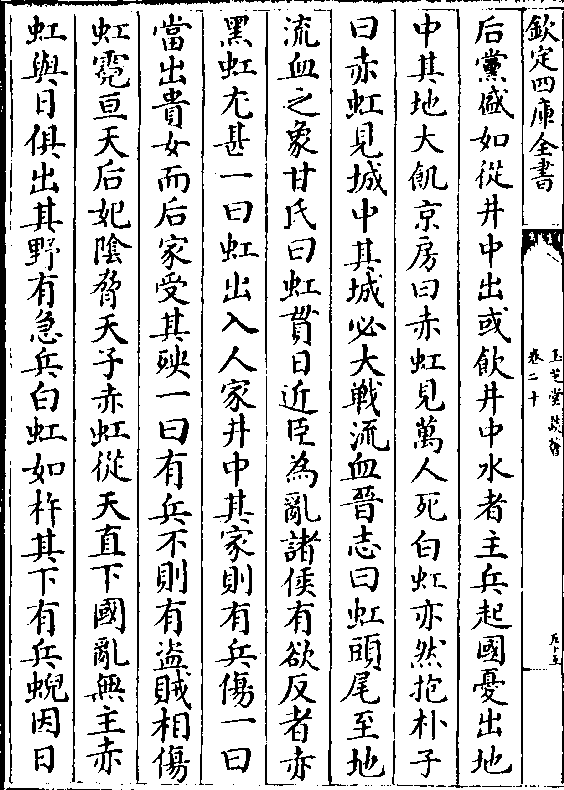 欽定四庫全書
卷二十
后黨盛如從井中出或飲井中水者主兵起國憂出地
中其地大飢京房曰赤虹見萬人死白虹亦然抱朴子
曰赤虹見城中其城必大戰流血晉志曰虹頭尾至地
流血之象甘氏曰虹貫日近臣為亂諸侯有欲反者亦
黑虹尤甚一曰虹出入人家井中其家則有兵傷一曰
當出貴女而后家受其殃一曰有兵不則有盜賊相傷
虹霓亘天后妃陰脅天子赤虹從天直下國亂無主赤
虹與日俱出其野有急兵白虹如杵其下有兵蜺因日